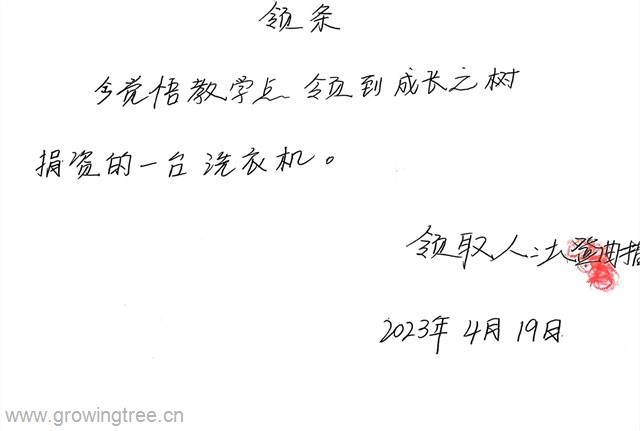 领条
今觉悟教学点领到成长之树
捐资的一台洗衣机。
领取人:
2023年4月19日
www.growingtree.cn